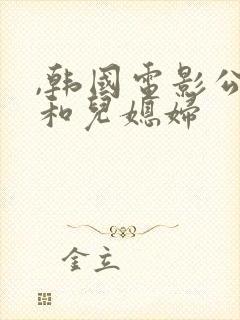 ,韩国电影公
和儿媳妇
金立